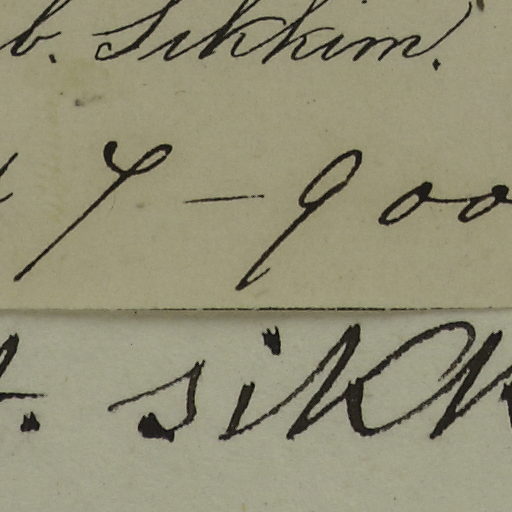 b. Sikkim.
7 - 900
t. sikk